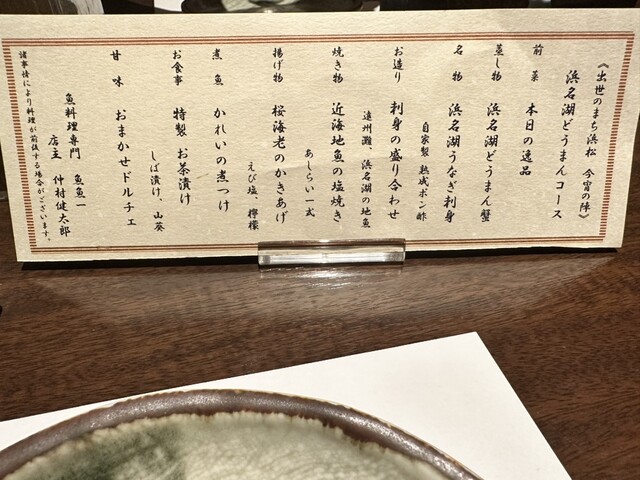 《出世のまち浜松 今宵の陣》
浜名湖どうまんコース
前菜 本日の逸品
蒸し物 浜名湖どうまん蟹
名物 浜名湖うなぎ刺身
自家製 熟成ポン酢
お造り 刺身の盛り合わせ
遠州灘、浜名湖の地魚
焼き物 近海地魚の塩焼き
あしらい一式
揚げ物 桜海老のかきあげ
えび塩、檸檬
煮魚 かれいの煮つけ
お食事 特製 お茶漬け
しば漬け、山葵
甘味 おまかせドルチェ
魚料理専門 魚魚一
店主 仲村健太郎
諸事情により料理が前後する場合がございます。